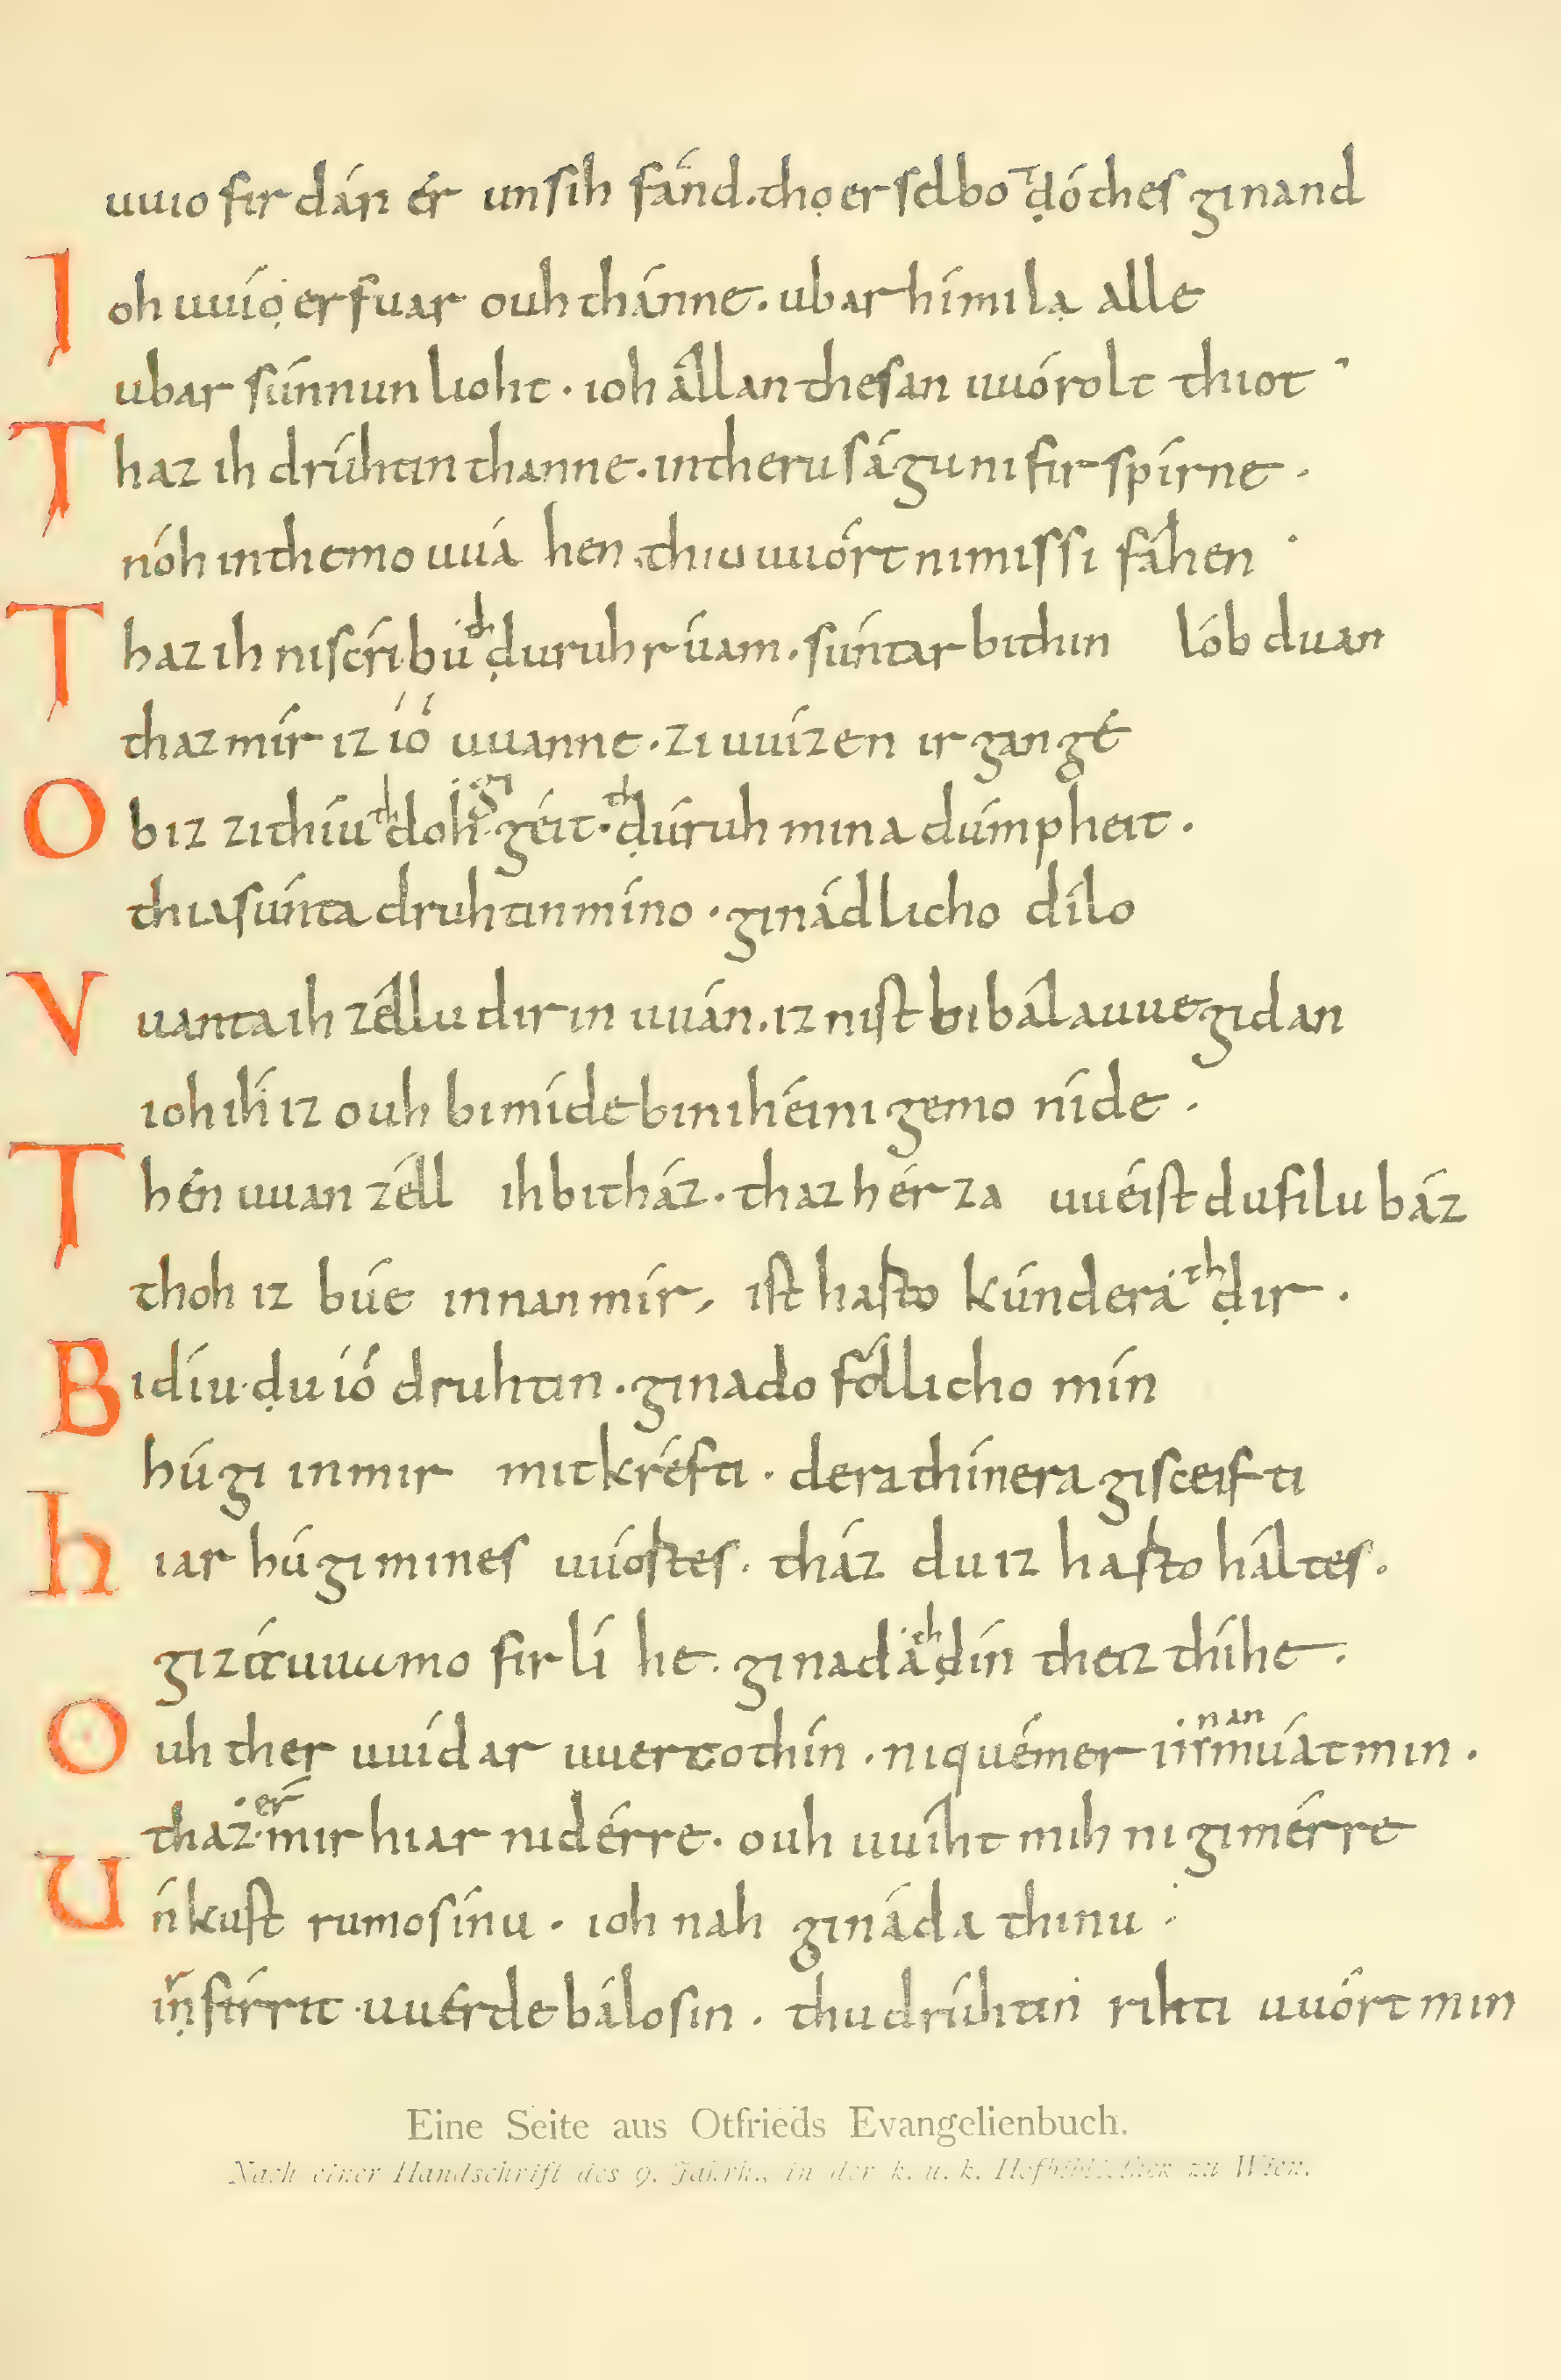 uuio fir dán ér unsih fánd. thọ er selbo ᵗḍóthes ginand
Ioh uuíọ er fuar ouh thánne. ubar hímila ̣ alle
ubar súnnun lioht. ioh állan thesan uuórolt thiot
Thaz ih drúhtin thanne. in theru ságu ni firspírne.
nóh in themo uuá hen. thiu uuórt ni missi fáhen
Thaz ih ni scríbu ᵗʰḍuruh rúam. súntar bi thin lób duan
thaz mír iz íó uuanne. zi uuízen ir gangé
Ob iz zi thíu ᵗʰdoh ᵍⁱgéit. ᵗʰḍúruh mina dúmpheit.
thia súnta druhtin míno. ginádlicho dílo
Vuanta ih zéllu dir in uuán. iz nist bi bálauue gidan
ioh ih iz ouh bimíde bi niheínigemo níde.
Thén uuan zéll ih bi tház. thaz hérza uuéist du filu báz
thoh iz búe innan mír, ist harto kúndera ᵗʰḍir.
Bidíu ḍu íó druhtin. ginado fóllicho mín
húgi in mir mit kréfti. dera thínera giscefti
hiar húgi mines uuórtes. tház du iz harto háltes.
gizáuuumo firlí he. ginada ᵗʰḍín thaz thíhe.
Ouh ther ̣ uuídaruuerto thín. ni quémer in ⁿᵃⁿ muat min.
thaz ᵉʳ mir hiar ni dérre. ouh uuiht mih ni gimérre
Unkust rumo sínu. ioh nah gináda thinu
irfirrit uuérde bálo sin. thu drúhtin rihti uuórt min
Eine Seite aus Otfrieds Evangelienbuch.
Nach einer Handschrift des 9. Jahrh., in der k. u. k. Hofbibliothek zu Wien.